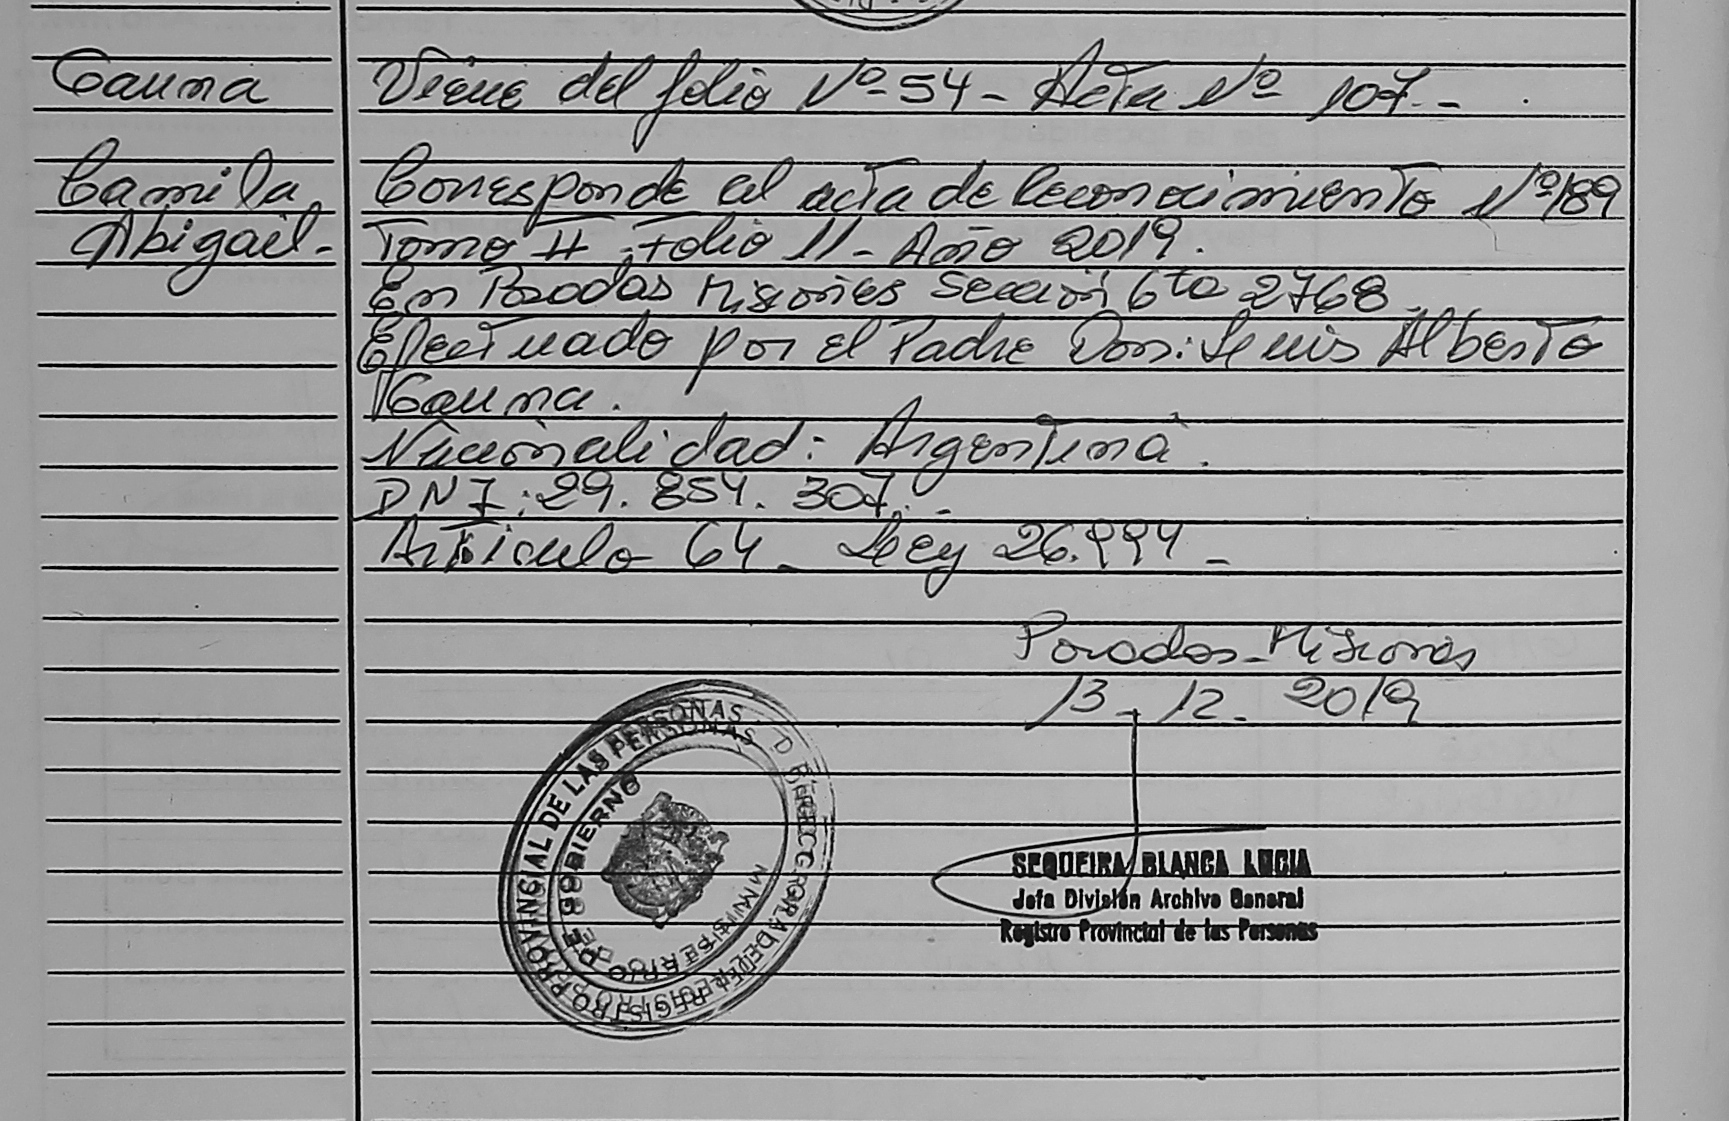 Gauna
Viene del folio Nº 54 - Acta Nº 107.-
Camila
Abigail.-
Corresponde al acta de Reconocimiento Nº 189
Tomo II, Folio 11 - Año 2019.
En Posadas Misiones Sección 6ta 2768.
Efectuado por el Padre Don: Luis Alberto
Gauna.
Nacionalidad: Argentina.
DNI: 29.854.307.-
Artículo 64 - Ley 26.994 -
Posadas - Misiones
13 - 12 - 2019
REGISTRO PROVINCIAL DE LAS PERSONAS
MINISTERIO DE GOBIERNO
SEQUEIRA BLANCA LUCIA
Jefa División Archivo General
Registro Provincial de las Personas